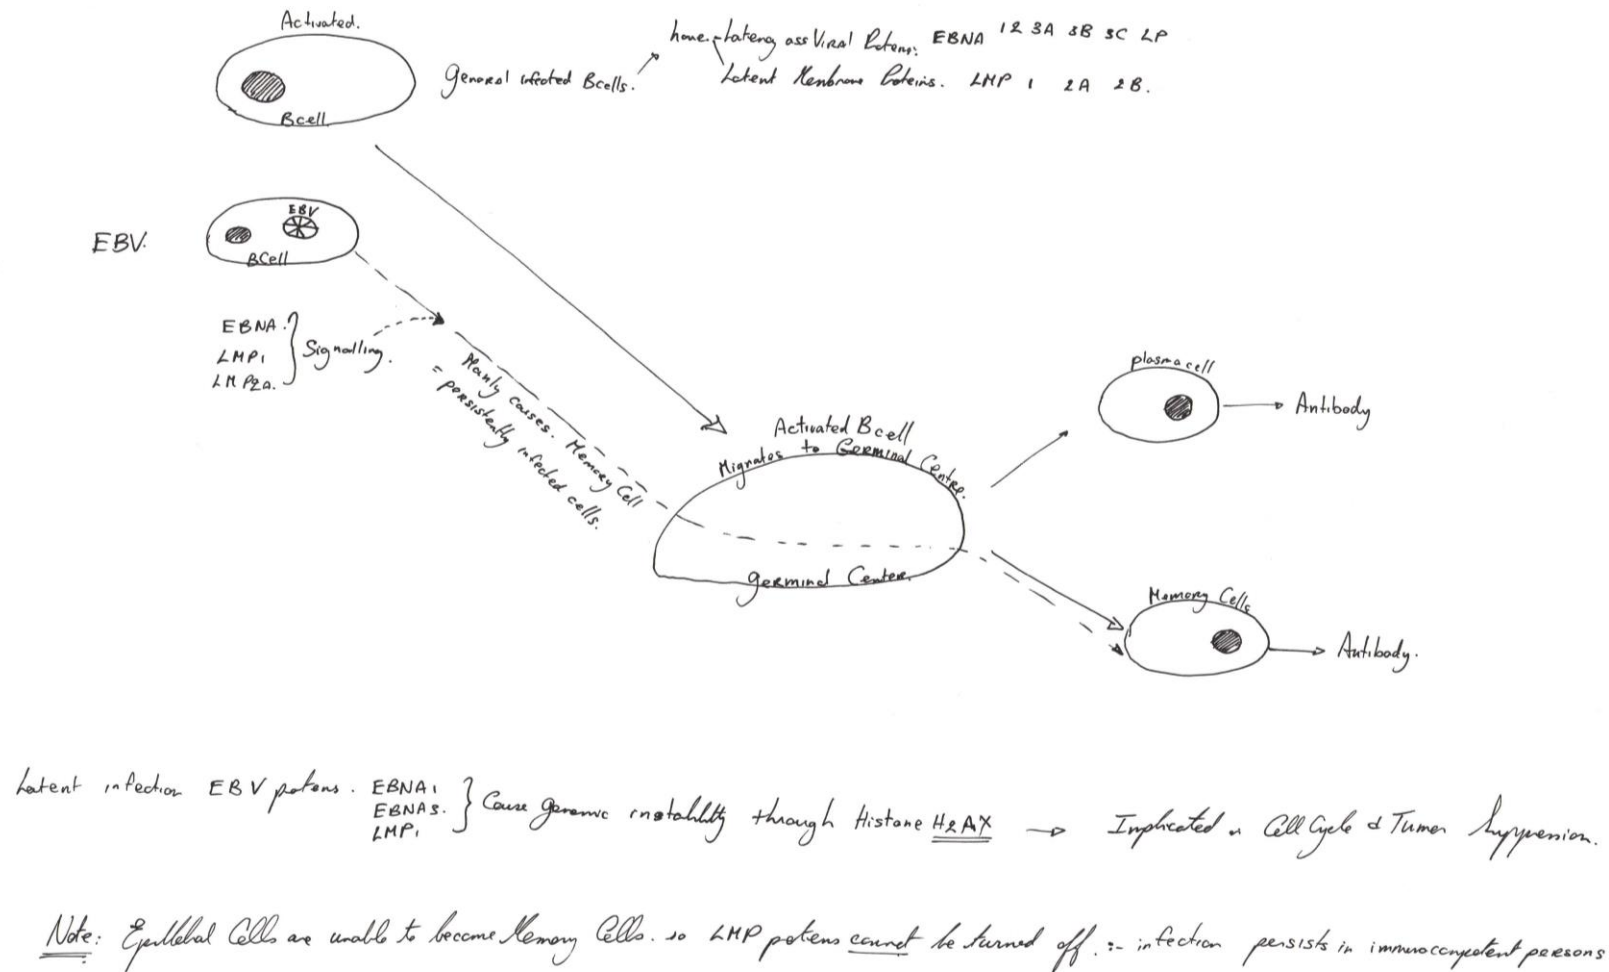 Activated.
Bcell
General infected Bcells.
have - Latency ass Viral Proteins: EBNA 1 2 3A 3B 3C LP
Latent Membrane Proteins. LMP 1 2A 2B.
EBV.
EBV
BCell
EBNA.
LMP1
LMP2a.
Signalling.
Mainly causes. Memory Cell
= persistently infected cells.
Activated Bcell
Migrates to Germinal Centre.
Germinal Center.
plasma cell
Antibody
Memory Cells
Antibody.
Latent infection EBV proteins. EBNA1
EBNA5.
LMP1
Cause genomic instability through Histone H2AX → Implicated in Cell Cycle & Tumor Suppression.
Note: Epithelial Cells are unable to become Memory Cells. so LMP proteins cannot be turned off. :- infection persists in immunocompetent persons